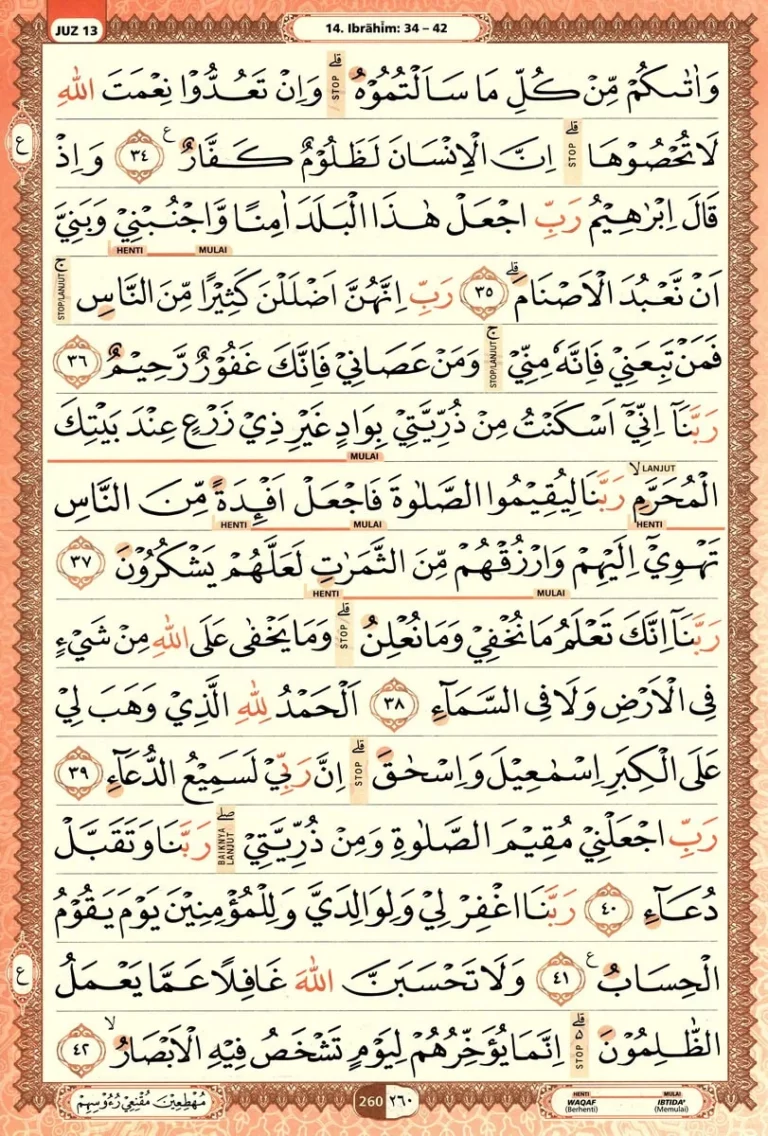 JUZ 13
14. Ibrāhīm: 34 – 42
وَاٰتٰىكُمْ مِّنْ كُلِّ مَا سَاَلْتُمُوْهُۗ STOP وَاِنْ تَعُدُّوْا نِعْمَتَ اللّٰهِ
لَا تُحْصُوْهَاۗ STOP اِنَّ الْاِنْسَانَ لَظَلُوْمٌ كَفَّارٌ ࣖ ٣٤ وَاِذْ
ع
قَالَ اِبْرٰهِيْمُ رَبِّ اجْعَلْ هٰذَا الْبَلَدَ اٰمِنًا وَّاجْنُبْنِيْ وَبَنِيَّ
MULAI HENTI
اَنْ نَّعْبُدَ الْاَصْنَامَۗ ٣٥ رَبِّ اِنَّهُنَّ اَضْلَلْنَ كَثِيْرًا مِّنَ النَّاسِۚ STOP/LANJUT
فَمَنْ تَبِعَنِيْ فَاِنَّهٗ مِنِّيْۚ STOP/LANJUT وَمَنْ عَصَانِيْ فَاِنَّكَ غَفُوْرٌ رَّحِيْمٌ ٣٦
رَبَّنَآ اِنِّيْٓ اَسْكَنْتُ مِنْ ذُرِّيَّتِيْ بِوَادٍ غَيْرِ ذِيْ زَرْعٍ عِنْدَ بَيْتِكَ
MULAI
الْمُحَرَّمِۙ LANJUT رَبَّنَا لِيُقِيْمُوا الصَّلٰوةَ فَاجْعَلْ اَفْـِٕدَةً مِّنَ النَّاسِ
HENTI MULAI HENTI
تَهْوِيْٓ اِلَيْهِمْ وَارْزُقْهُمْ مِّنَ الثَّمَرٰتِ لَعَلَّهُمْ يَشْكُرُوْنَ ٣٧
MULAI HENTI
رَبَّنَآ اِنَّكَ تَعْلَمُ مَا نُخْفِيْ وَمَا نُعْلِنُۗ STOP وَمَا يَخْفٰى عَلَى اللّٰهِ مِنْ شَيْءٍ
فِى الْاَرْضِ وَلَا فِى السَّمَاۤءِ ٣٨ اَلْحَمْدُ لِلّٰهِ الَّذِيْ وَهَبَ لِيْ
عَلَى الْكِبَرِ اِسْمٰعِيْلَ وَاِسْحٰقَۗ STOP اِنَّ رَبِّيْ لَسَمِيْعُ الدُّعَاۤءِ ٣٩
رَبِّ اجْعَلْنِيْ مُقِيْمَ الصَّلٰوةِ وَمِنْ ذُرِّيَّتِيْۖ BAIKNYA LANJUT رَبَّنَا وَتَقَبَّلْ
دُعَاۤءِ ٤٠ رَبَّنَا اغْفِرْ لِيْ وَلِوَالِدَيَّ وَلِلْمُؤْمِنِيْنَ يَوْمَ يَقُوْمُ
الْحِسَابُ ࣖ ٤١ وَلَا تَحْسَبَنَّ اللّٰهَ غَافِلًا عَمَّا يَعْمَلُ
ع
الظّٰلِمُوْنَ ەۗ STOP اِنَّمَا يُؤَخِّرُهُمْ لِيَوْمٍ تَشْخَصُ فِيْهِ الْاَبْصَارُۙ ٤٢
مُهْطِعِيْنَ مُقْنِعِيْ رُءُوْسِهِمْ
260 ٢٦٠
HENTI MULAI
WAQAF IBTIDA'
(Berhenti) (Memulai)